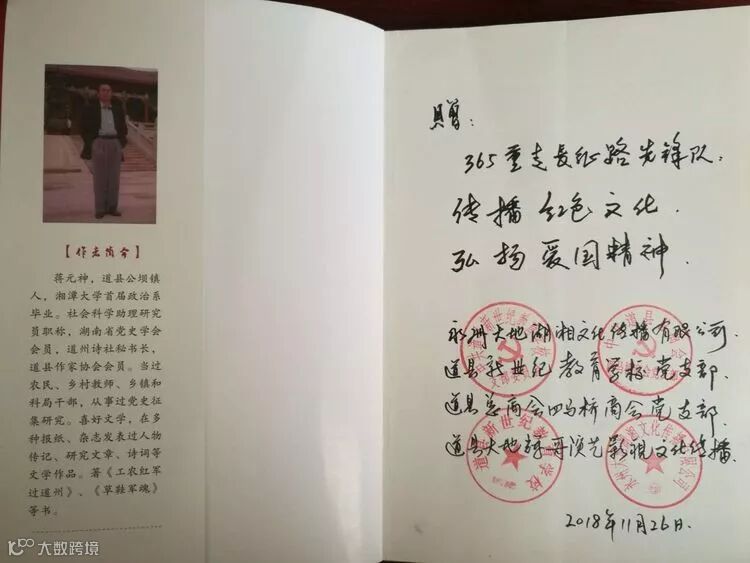 【作者简介】
蒋元神，道县公坝镇
人，湘潭大学首届政治系
毕业。社会科学助理研究
员职称，湖南省党史学会
会员，道州诗社秘书长，
道县作家协会会员。当过
农民、乡村教师、乡镇和
科局干部，从事过党史征
集研究。喜好文学，在多
种报纸、杂志发表过人物
传记、研究文章、诗词等
文学作品。著《工农红军
过道州》、《草鞋军魂》
等书。
赠：
365重走长征路先锋队：
传播红色文化．
弘扬爱国精神．
永州大地湖湘文化传播有限公司．
道县新世纪教育学校党支部．
道县总商会四马桥商会党支部．
道县大地 演艺影视文化传播
2018年11月26日．
道县新世纪教育学校
大数跨境